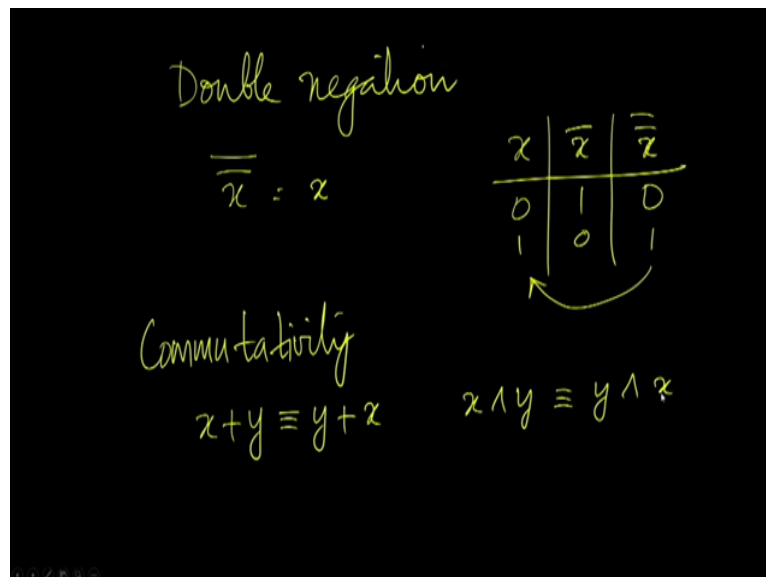 Double negation
x̿ = x
x | x̅ | x̿
0 | 1 | 0
1 | 0 | 1
Commutativity
x+y ≡ y+x
x∧y ≡ y∧x